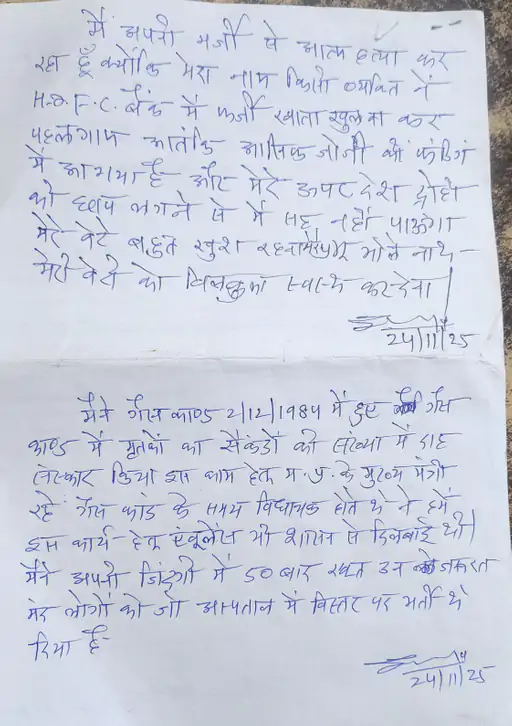 मैं अपनी मर्जी से आत्म हत्या कर
रहा हूँ क्योंकि मेरा नाम किसी व्यक्ति ने
H.D.F.C. बैंक में फर्जी खाता खुलवा कर
पहलगाम आतंकि आसिफ जोजी को फंडिंग
में आ गया है और मेरे ऊपर देश द्रोही
की छाप लगने से में सह नहीं पाऊंगा
मेरे बेटे बहुत खुश रहना मेरे प्रभू भोले नाथ-
मेरी बेटी को बिलकुल स्वास्थ कर देना
24/11/25
मैंने गैस काण्ड 2/12/1984 में हुए गैस
काण्ड में मृतकों का सैकडों की संख्या में दाह
संस्कार किया इस काम हेतु म.प्र. के मुख्य मंत्री
रहे गैस कांड के समय विधायक होते थे ने हमें
इस कार्य हेतु एंबूलेंस भी शासन से दिलबाई थी
मैंने अपनी जिंदगी में 50 बार रक्त उन जरूरत
मंद लोगों को जो अस्पताल में बिस्तर पर भर्ती थे
दिया है-
24/11/25